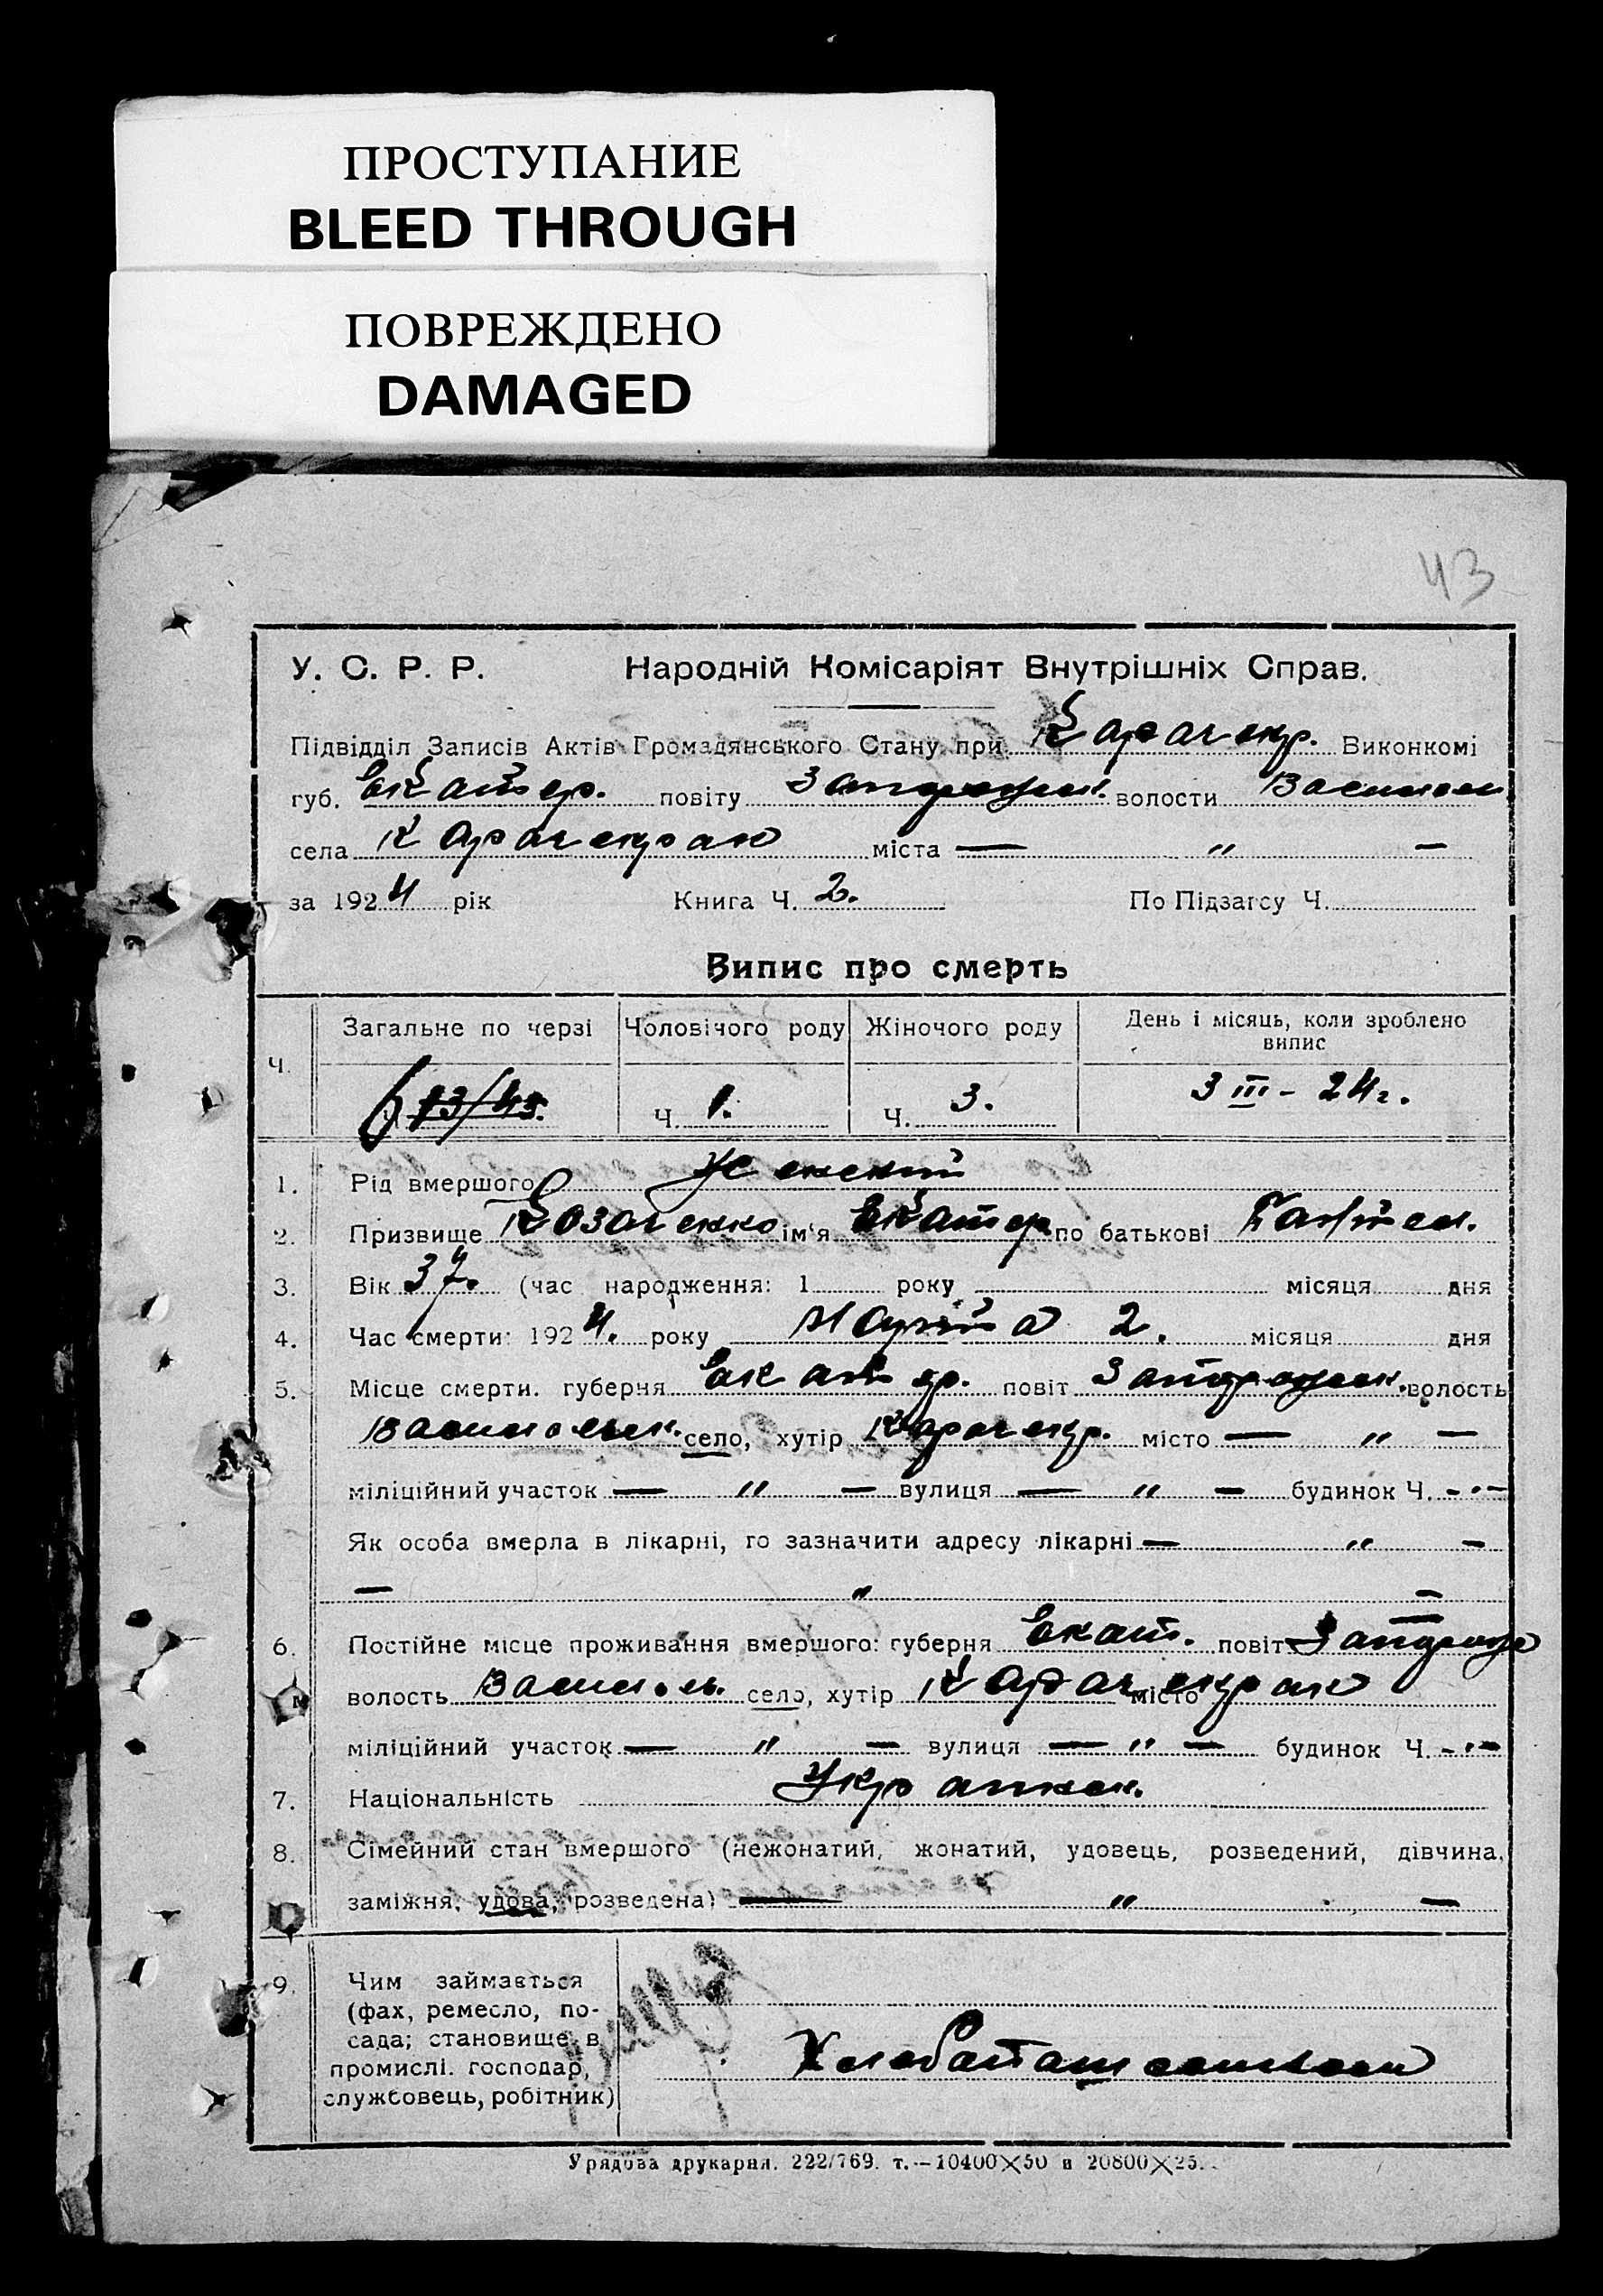 ПРОСТУПАНИЕ
BLEED THROUGH
ПОВРЕЖДЕНО
DAMAGED
43
У. С. Р. Р. Народній Комісаріят Внутрішніх Справ.
Підвідділ Записів Актів Громадянського Стану при Карачекр. Виконкомі
губ. Екатер. повіту волости
села Карачекрак міста — " —
за 1924 рік Книга Ч. 2. По Підзагсу Ч.
Випис про смерть
Ч. Загальне по черзі Чоловічого роду Жіночого роду День і місяць, коли зроблено
випис
6 Ч. 1. Ч. 3. 3 III – 24 г.
1. Рід вмершого Женский
2. Призвище Козаченко ім'я Екатер по батькові
3. Вік 37. (час народження: 1 року місяця дня
4. Час смерти: 1924. року Марта 2. місяця дня
5. Місце смерти. губерня Екатер. повіт волость
село, хутір Карачекр. місто — " —
міліційний участок — " — вулиця — " — будинок Ч. - " -
Як особа вмерла в лікарні, го зазначити адресу лікарні — " —
— " —
6. Постійне місце проживання вмершого: губерня Екат. повіт
волость село, хутір Карачекрак місто
міліційний участок — " — вулиця — " — будинок Ч. - " -
7. Національність
8. Сімейний стан вмершого (нежонатий, жонатий, удовець, розведений, дівчина,
заміжня, удова, розведена) — " —
9. Чим займається
(фах, ремесло, по-
сада; становище в
промислі. господар,
службовець, робітник)
Урядова друкарня. 222/769. т.—10400×50 и 20800×25.